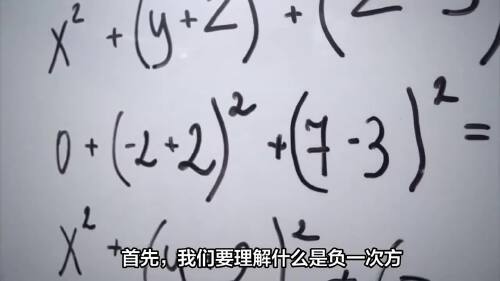 x² + (y+2) + (2 - 3)
0 + (-2+2)² + (7-3)² =
x² + (y+2)²
首先，我们要理解什么是负一次方